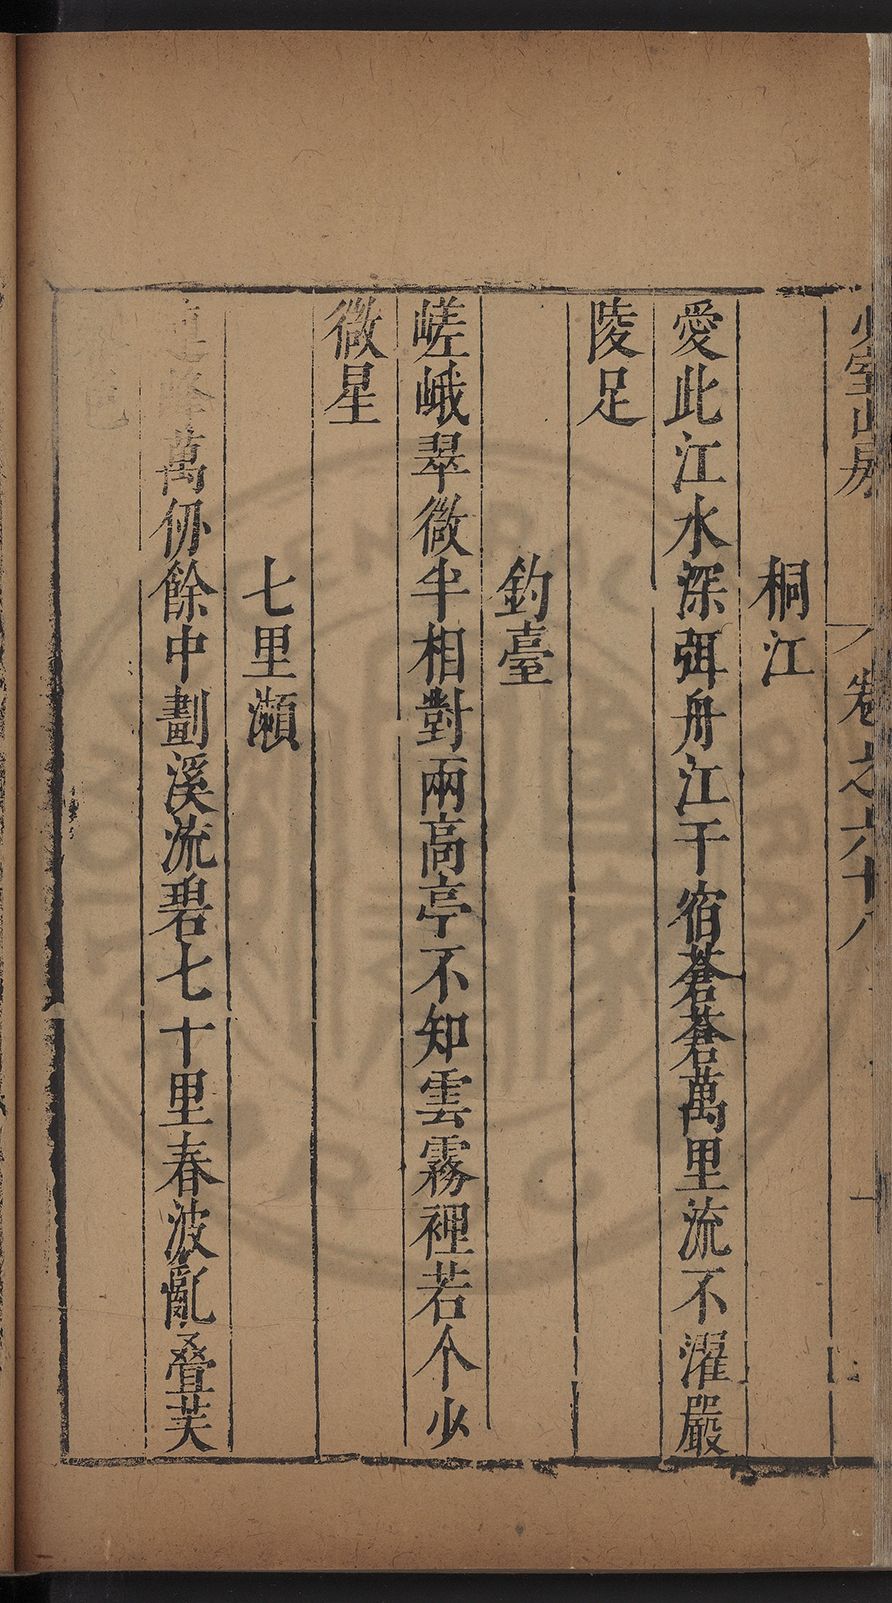 少室山房 卷之六十八
桐江
愛此江水深弭舟江干宿蒼蒼萬里流不濯嚴
陵足
釣臺
嵯峨翠微半相對兩高亭不知雲霧裡若个少
微星
七里瀬
連峰萬仞餘中劃溪流碧七十里春波亂叠芙
色